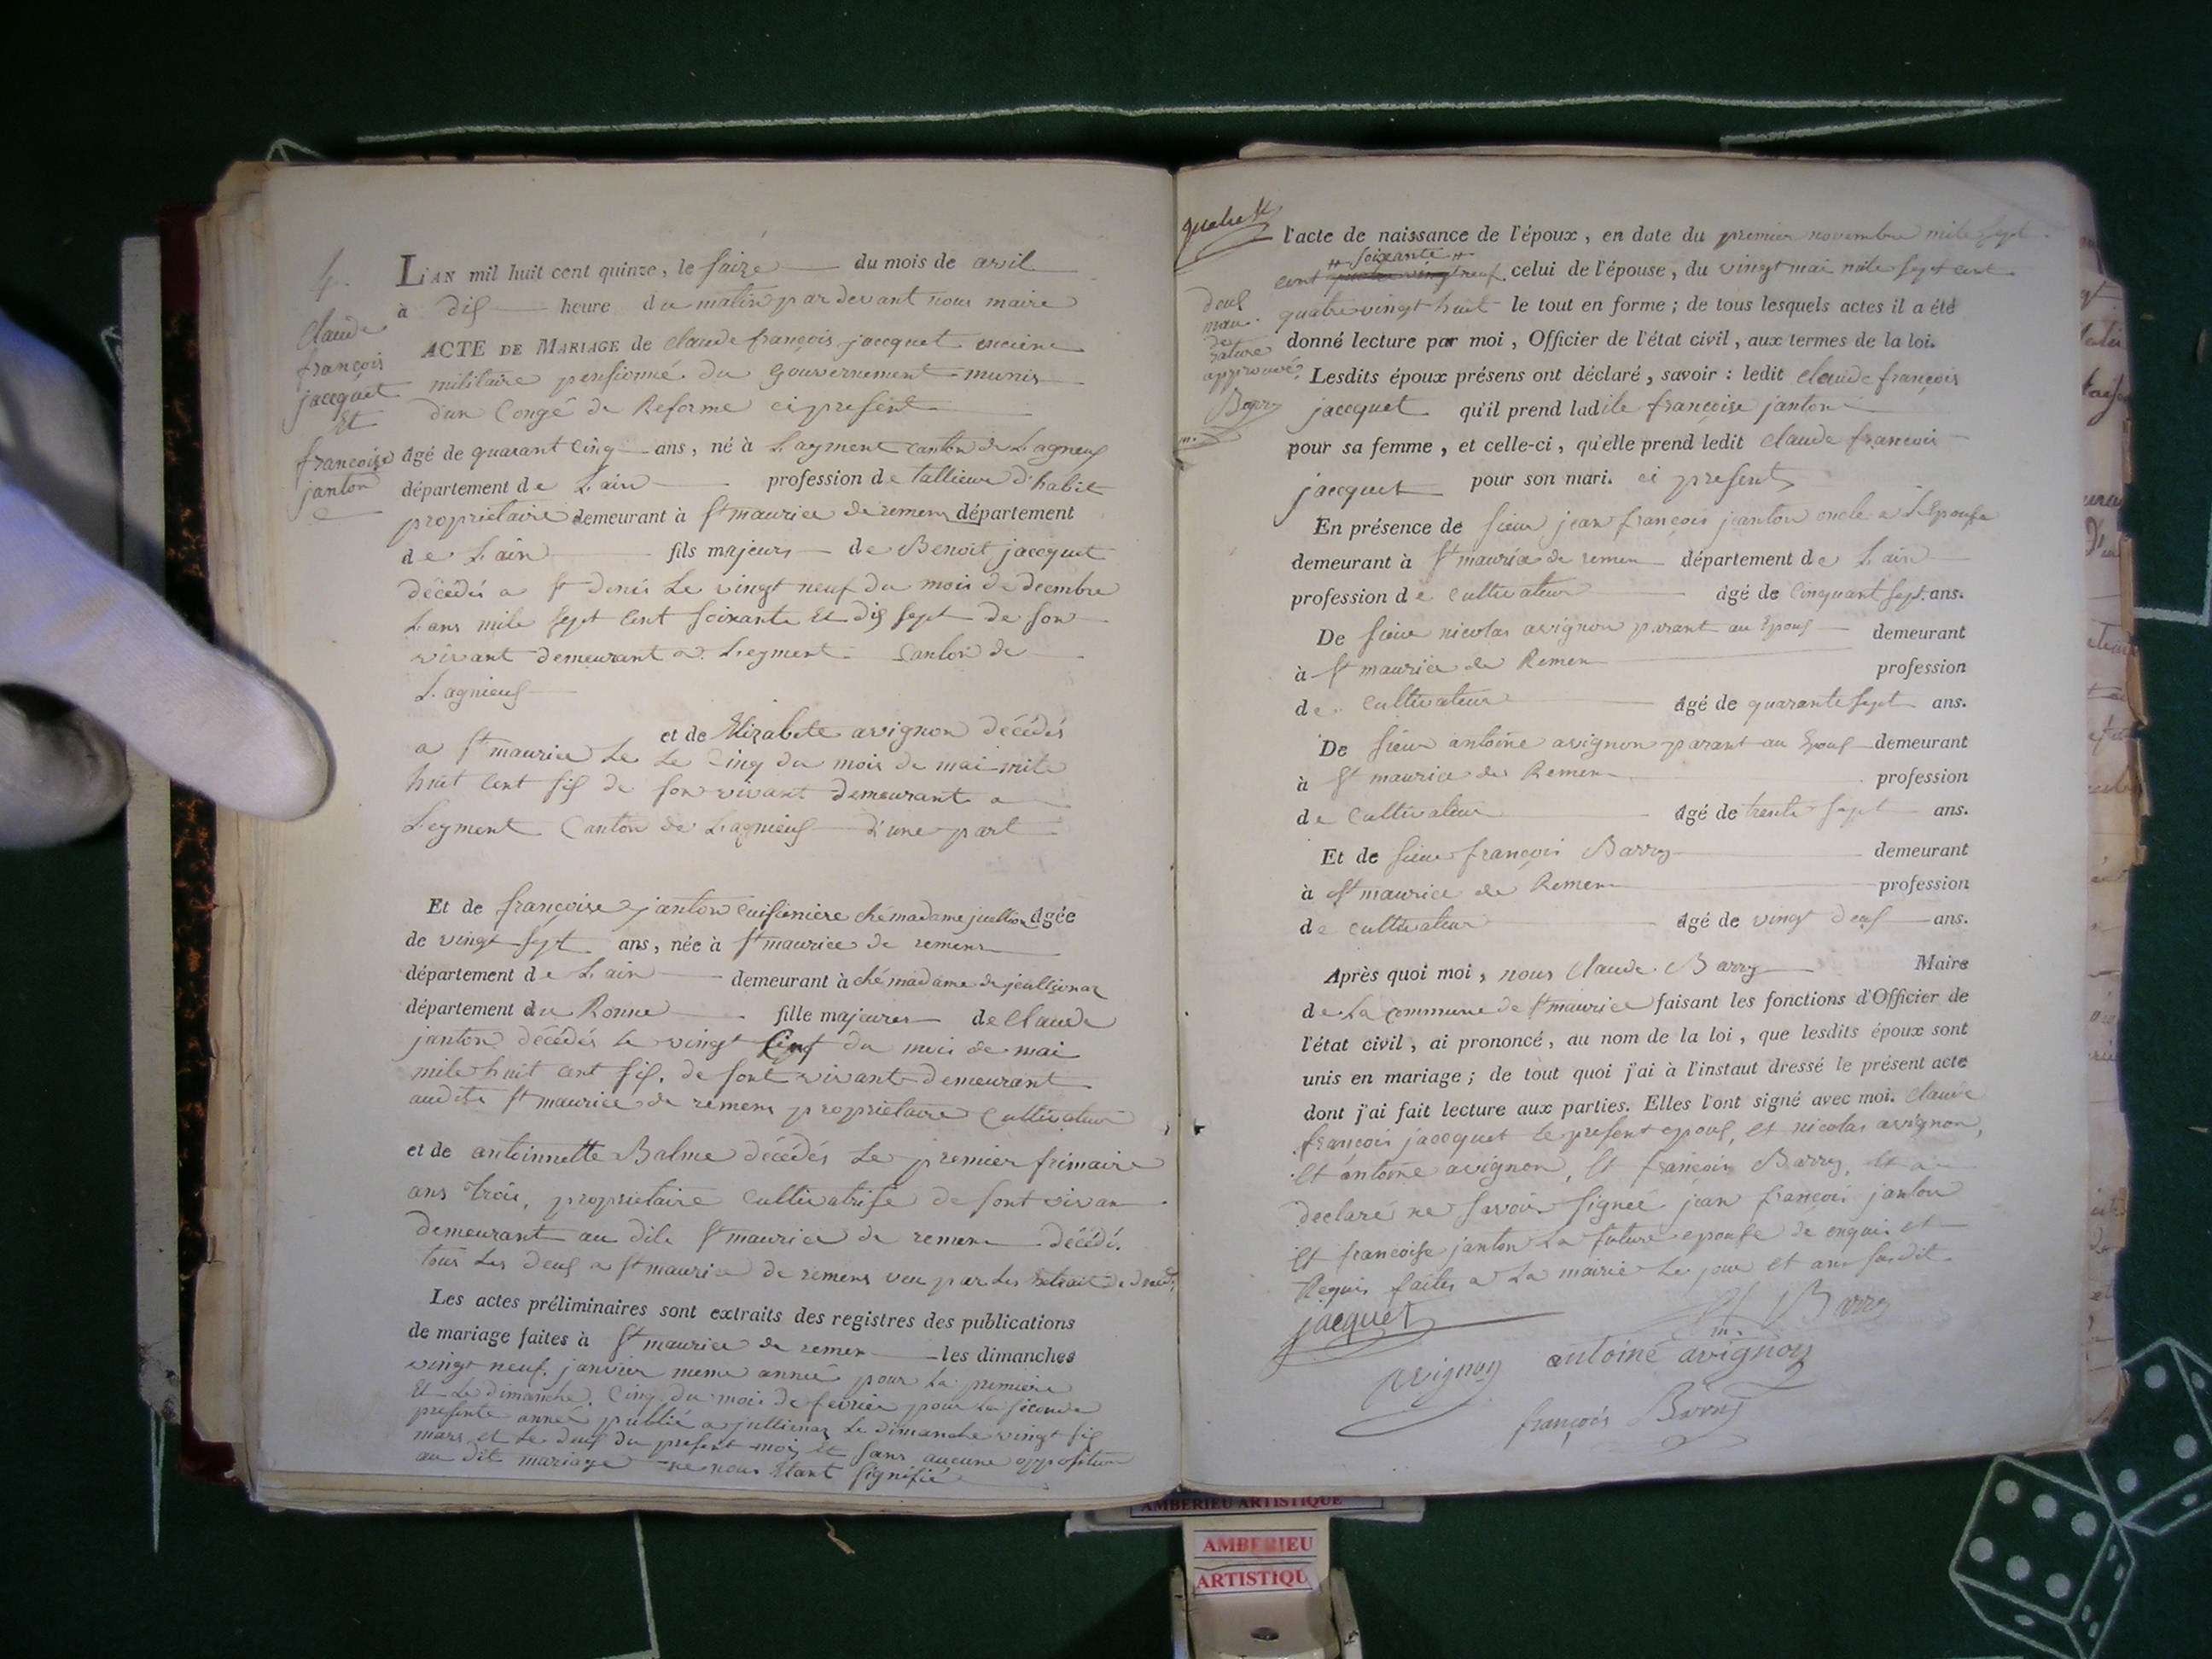 4.
Claude
françois
jacequet
Et
françoise
janton
L'AN mil huit cent quinze, le saize du mois de avril
à dis heure du matin par devant nous maire
ACTE DE MARIAGE de Claude françois jacequet enciene
militaire pensionné du gouvernement munis
d'un Congé de Reforme ci present
âgé de quarant cinq ans, né à L'ayment canton de Lagneus
département de L'ain profession de tallieur d'habit
proprietaire demeurant à St maurice de remens département
de L'ain fils majeurs de Benoit jacequet
décédés a St denis Le vingt neuf du mois de decembre
L'ans mile sept cent soixante et dis sept de son
vivant demeurant a Leyment Canton de
Lagnieus
et de Elizabete avignon décédés
a St maurice Le Le Cinq du mois de mai mile
huit cent sis de son vivant demeurant a
Leyment Canton de Lagnieus d'une part
Et de françoise janton cuisiniere ché madame âgée
de vingt sept ans, née à St maurice de remens
département de L'ain demeurant à ché madame de
département du Ronne fille majeures de Claude
janton décédés Le vingt du mois de mai
mile huit cent sis, de sont vivant demeurant
audite St maurice de remens proprietaire Cultivateur
et de antoinnette Balme décédés Le premier frimaire
ans trois, proprietaire cultivatrise de sont vivan
demeurant au dite St maurice de remens décédé.
tous Les deus a St maurice de remens veu par Les
Les actes préliminaires sont extraits des registres des publications
de mariage faites à St maurice de remens les dimanches
vingt neuf janvier meme année pour La premiere
Et Le dimanche Cinq du mois de fevrier pour La seconde
presente année publié a jullienas Le dimanche vingt sis
mars et Le deus du present mois et sans aucune opposition
au dit mariage ne nous Etant signifié
deus
mau
de
rature
approuvé
Barry
m.
l'acte de naissance de l'époux, en date du premier novembre mile sept
soixante
cent quatre vingt neuf celui de l'épouse, du vingt mai mile sept cent
quatre vingt huit le tout en forme; de tous lesquels actes il a été
donné lecture par moi, Officier de l'état civil, aux termes de la loi.
Lesdits époux présens ont déclaré, savoir : ledit Claude françois
jacequet qu'il prend ladite françoise janton
pour sa femme, et celle-ci, qu'elle prend ledit Claude françois
jacequet pour son mari. ci present
En présence de sieur jean françois janton oncle a L'Epouse
demeurant à St maurice de remen département de L'ain
profession de Cultivateur âgé de Cinquant sept ans.
De sieur nicolas avignon parant au Epous demeurant
à St maurice de Remen profession
de Cultivateur âgé de quarante sept ans.
De sieur antoine avignon parant au Epous demeurant
à St maurice de Remen profession
de Cultivateur âgé de trente sept ans.
Et de sieur françois Barry demeurant
à St maurice de Remen profession
de cultivateur âgé de vingt deus ans.
Après quoi moi, nous Claude Barry Maire
de La commune de St maurice faisant les fonctions d'Officier de
l'état civil, ai prononcé, au nom de la loi, que lesdits époux sont
unis en mariage; de tout quoi j'ai à l'instaut dressé le présent acte
dont j'ai fait lecture aux parties. Elles l'ont signé avec moi. Claude
françois jacequet Le present epous, et nicolas avignon,
Et antoine avignon, Et françois Barry, Et a
declaré ne savoir signeé jean françois janton
Et françoise janton La future epouse de enquis et
Requis faites a La mairie Le jour et ans susdit
jacquet
Barry
m.
avignon
antoine avignon
françois Barry
AMBERIEU ARTISTIQUE
AMBERIEU
ARTISTIQU